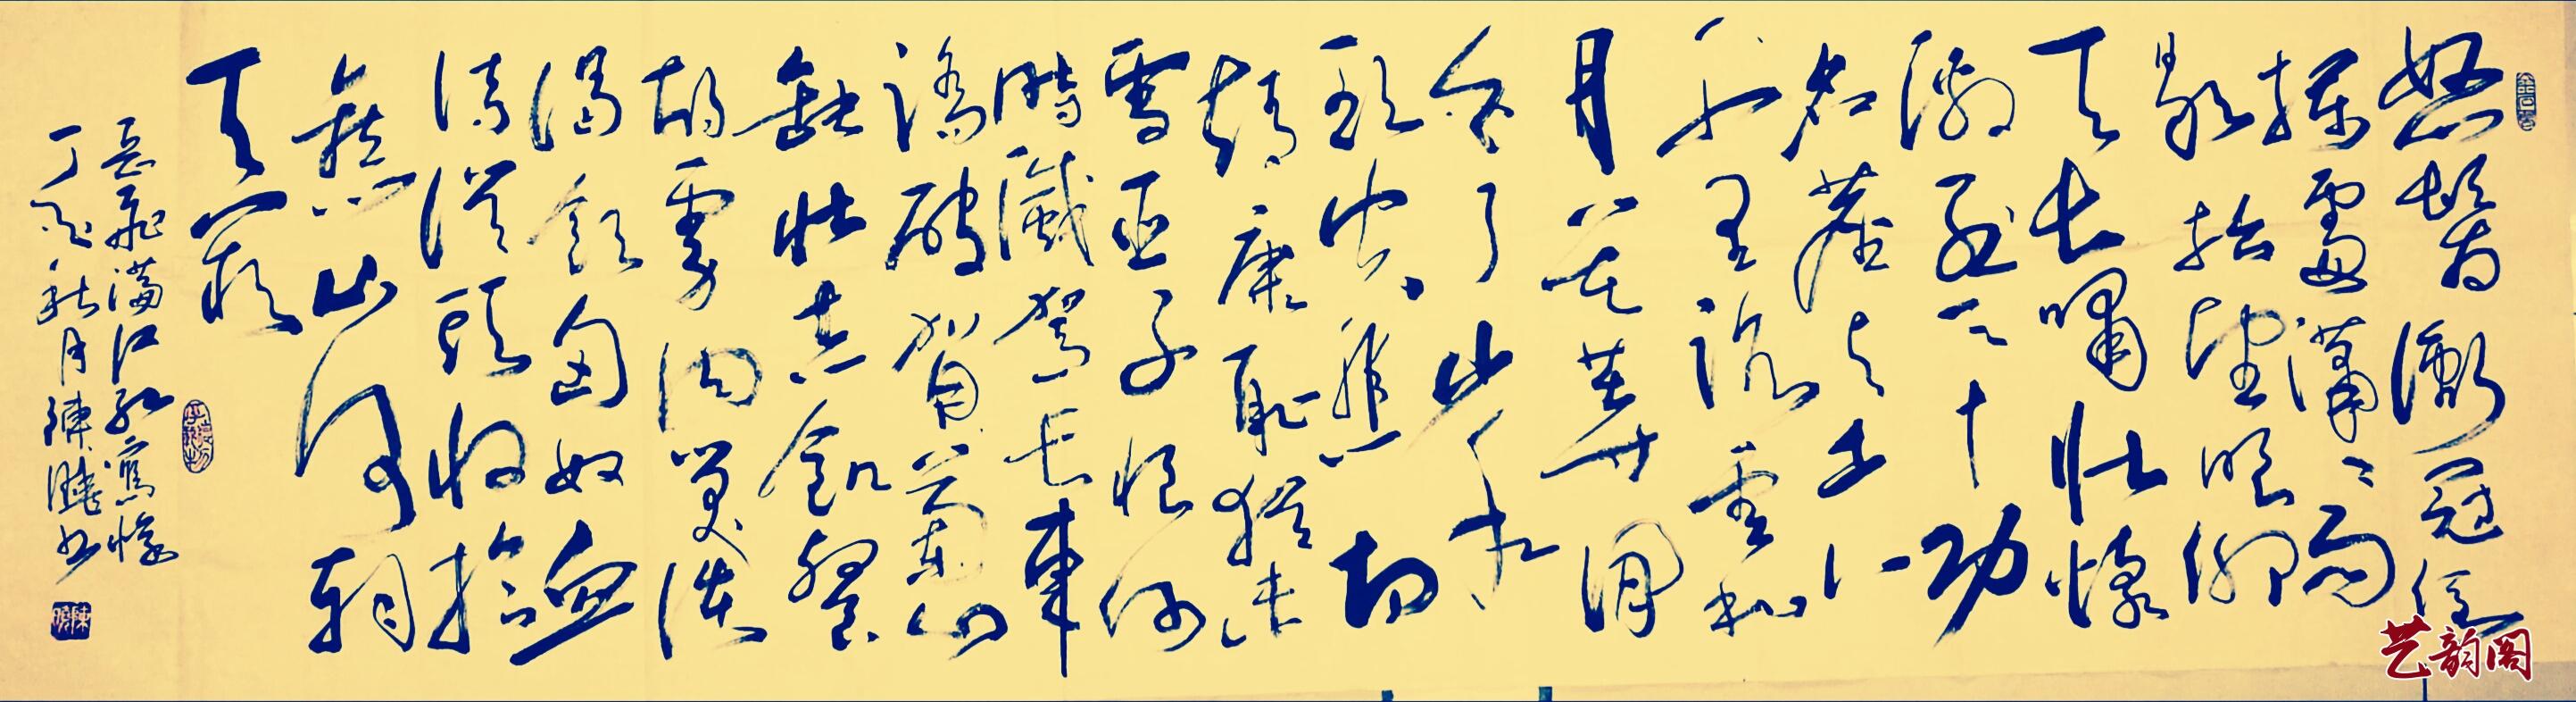 怒髮衝冠憑
欄處瀟瀟雨
歇抬望眼仰
天長嘯壯懷
激烈三十功
名塵與土八
千里路雲和
月莫等閒
白了少年
頭空悲切
靖康恥猶未
雪臣子恨何
時滅駕長車
踏破賀蘭山
缺壯志飢餐
胡虜肉笑談
渴飲匈奴血
待從頭收拾
舊山河朝
天闕
岳飛滿江紅寫懷
丁亥秋月陳曉書
艺韵阁